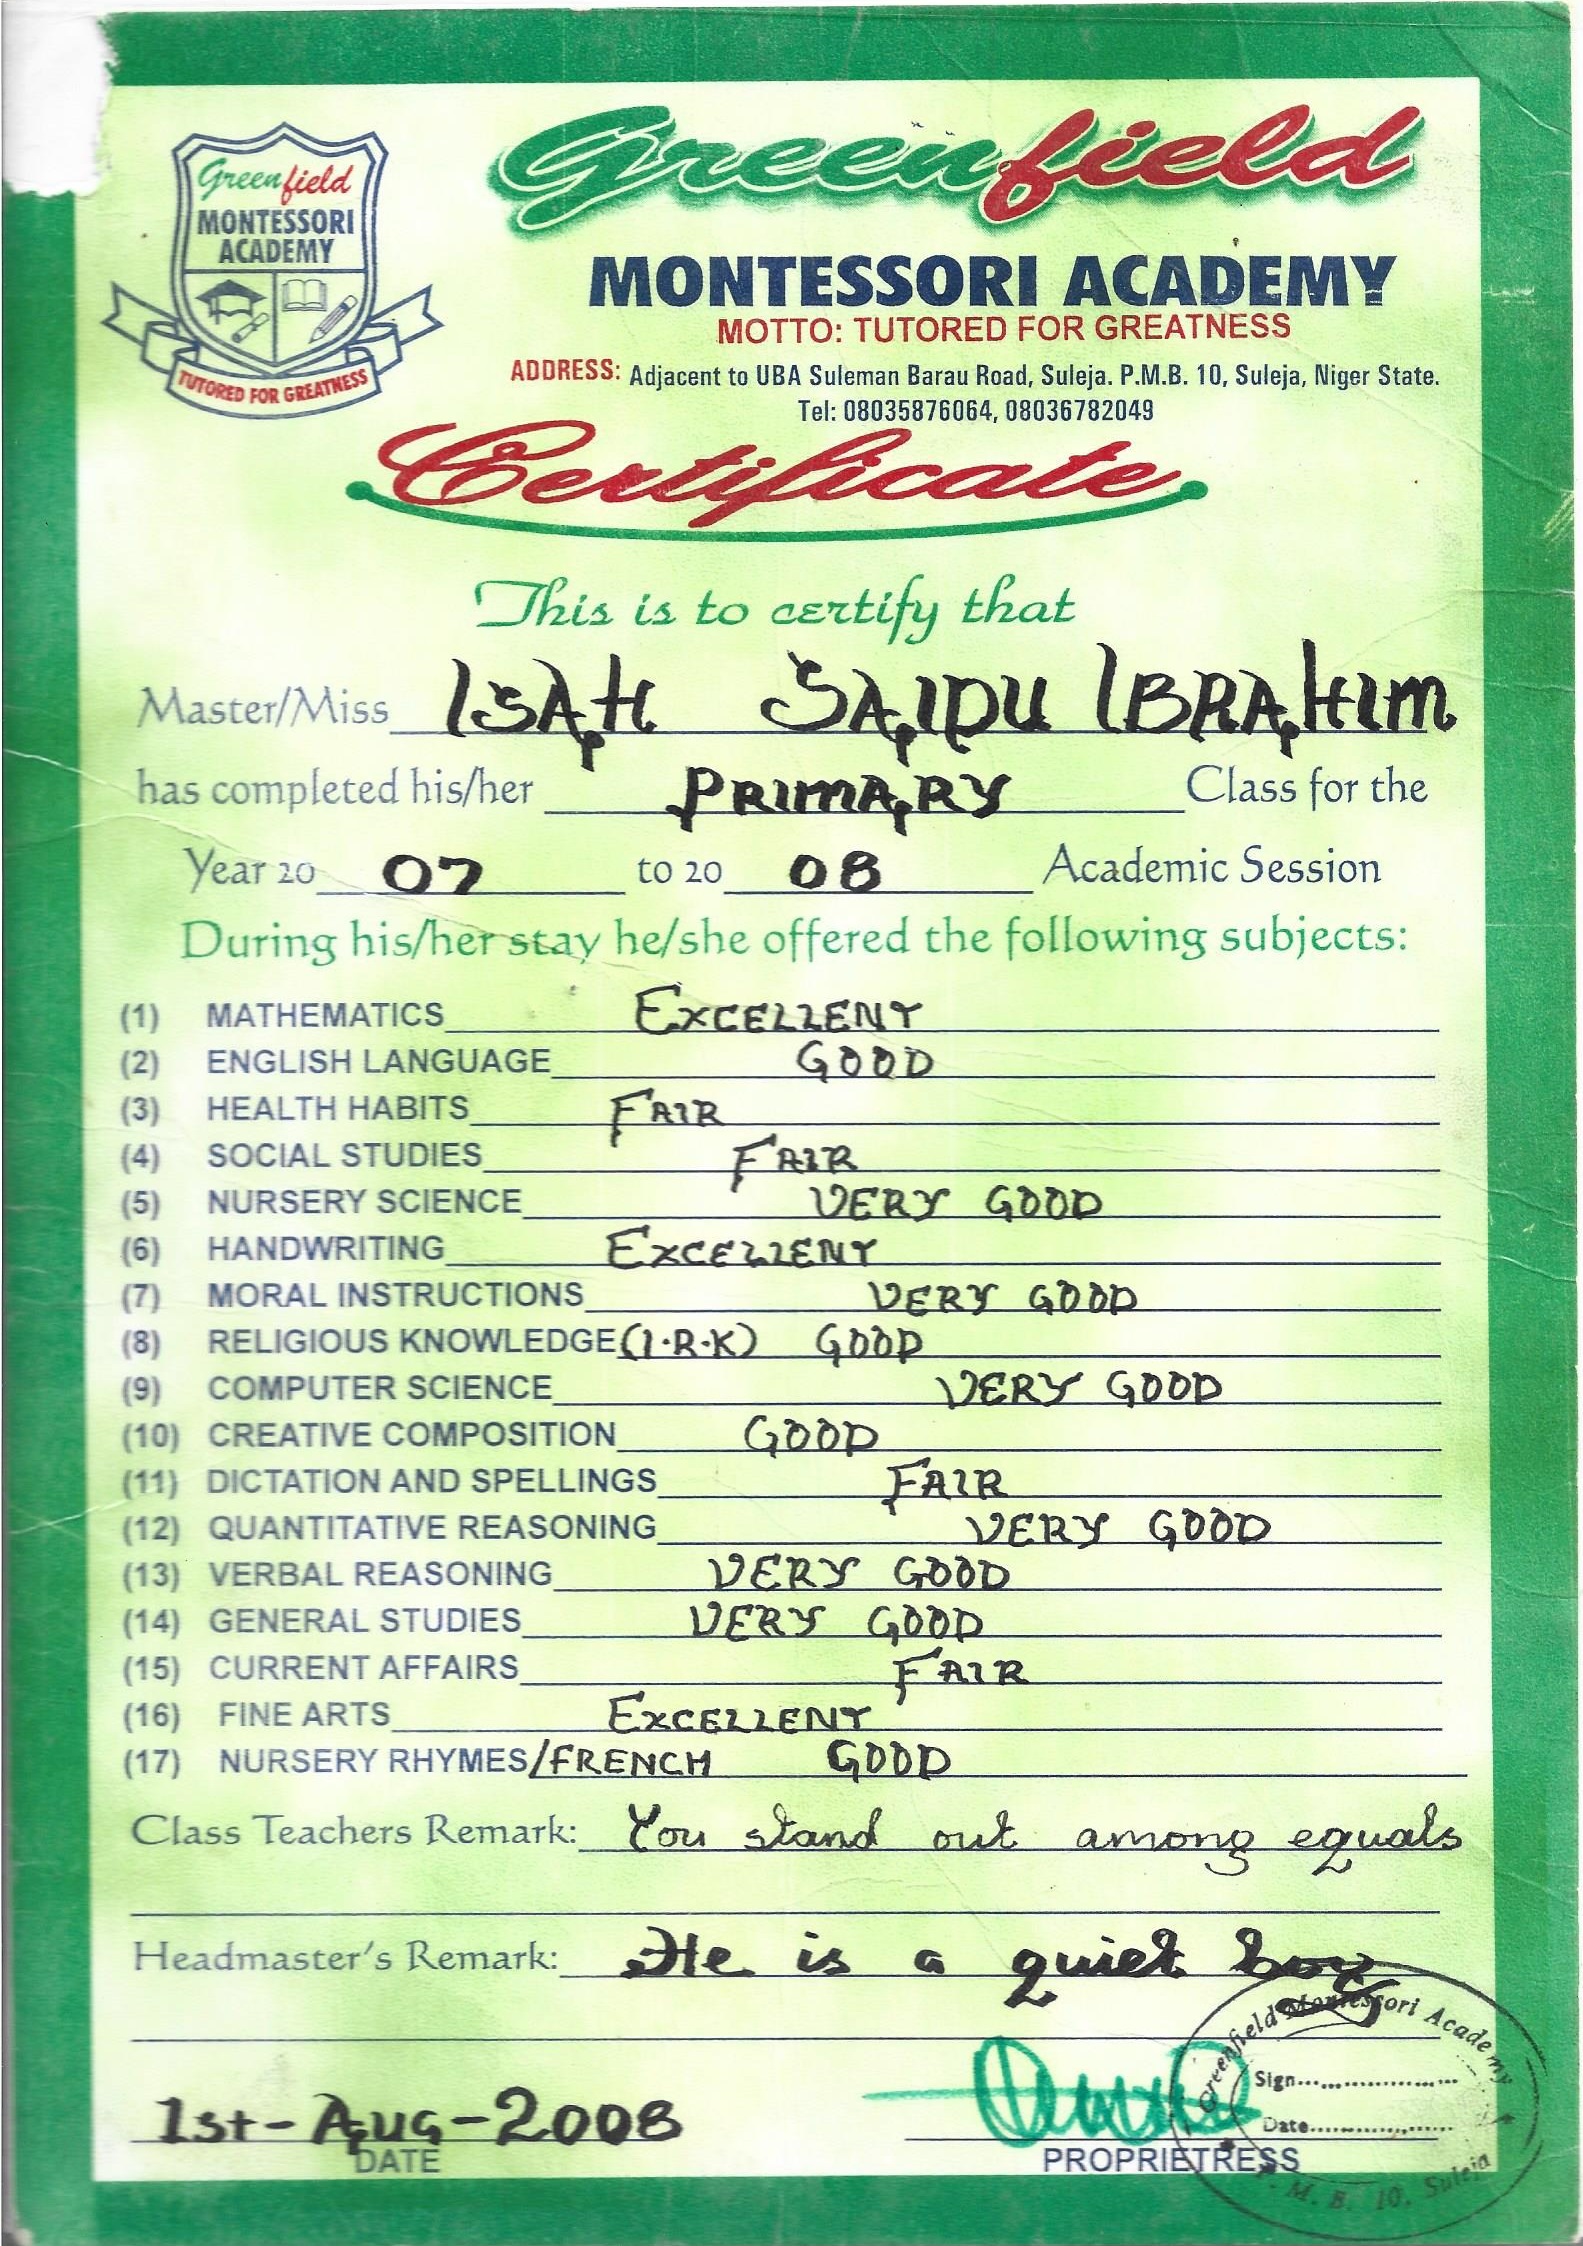 Greenfield
MONTESSORI
ACADEMY
TUTORED FOR GREATNESS
Greenfield
MONTESSORI ACADEMY
MOTTO: TUTORED FOR GREATNESS
ADDRESS: Adjacent to UBA Suleman Barau Road, Suleja. P.M.B. 10, Suleja, Niger State.
Tel: 08035876064, 08036782049
Certificate
This is to certify that
Master/Miss ISAH SAIDU IBRAHIM
has completed his/her PRIMARY Class for the
Year 20 07 to 20 08 Academic Session
During his/her stay he/she offered the following subjects:
(1) MATHEMATICS EXCELLENT
(2) ENGLISH LANGUAGE GOOD
(3) HEALTH HABITS FAIR
(4) SOCIAL STUDIES FAIR
(5) NURSERY SCIENCE VERY GOOD
(6) HANDWRITING EXCELLENT
(7) MORAL INSTRUCTIONS VERY GOOD
(8) RELIGIOUS KNOWLEDGE (I.R.K) GOOD
(9) COMPUTER SCIENCE VERY GOOD
(10) CREATIVE COMPOSITION GOOD
(11) DICTATION AND SPELLINGS FAIR
(12) QUANTITATIVE REASONING VERY GOOD
(13) VERBAL REASONING VERY GOOD
(14) GENERAL STUDIES VERY GOOD
(15) CURRENT AFFAIRS FAIR
(16) FINE ARTS EXCELLENT
(17) NURSERY RHYMES/FRENCH GOOD
Class Teachers Remark: You stand out among equals
Headmaster's Remark: He is a quiet boy
Greenfield Montessori Academy
Sign....................
Date....................
P.M.B. 10, Suleja
1st-AUG-2008
DATE
PROPRIETRESS